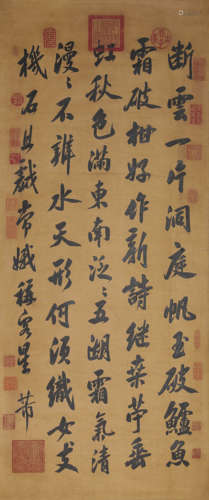 断雲一片洞庭帆玉破鱸魚
霜破柑好作新詩継桑苧垂
虹秋色滿東南泛〻五湖霜氣清
漫〻不辨水天形何須織女支
機石且戲常娥稱客星 芾